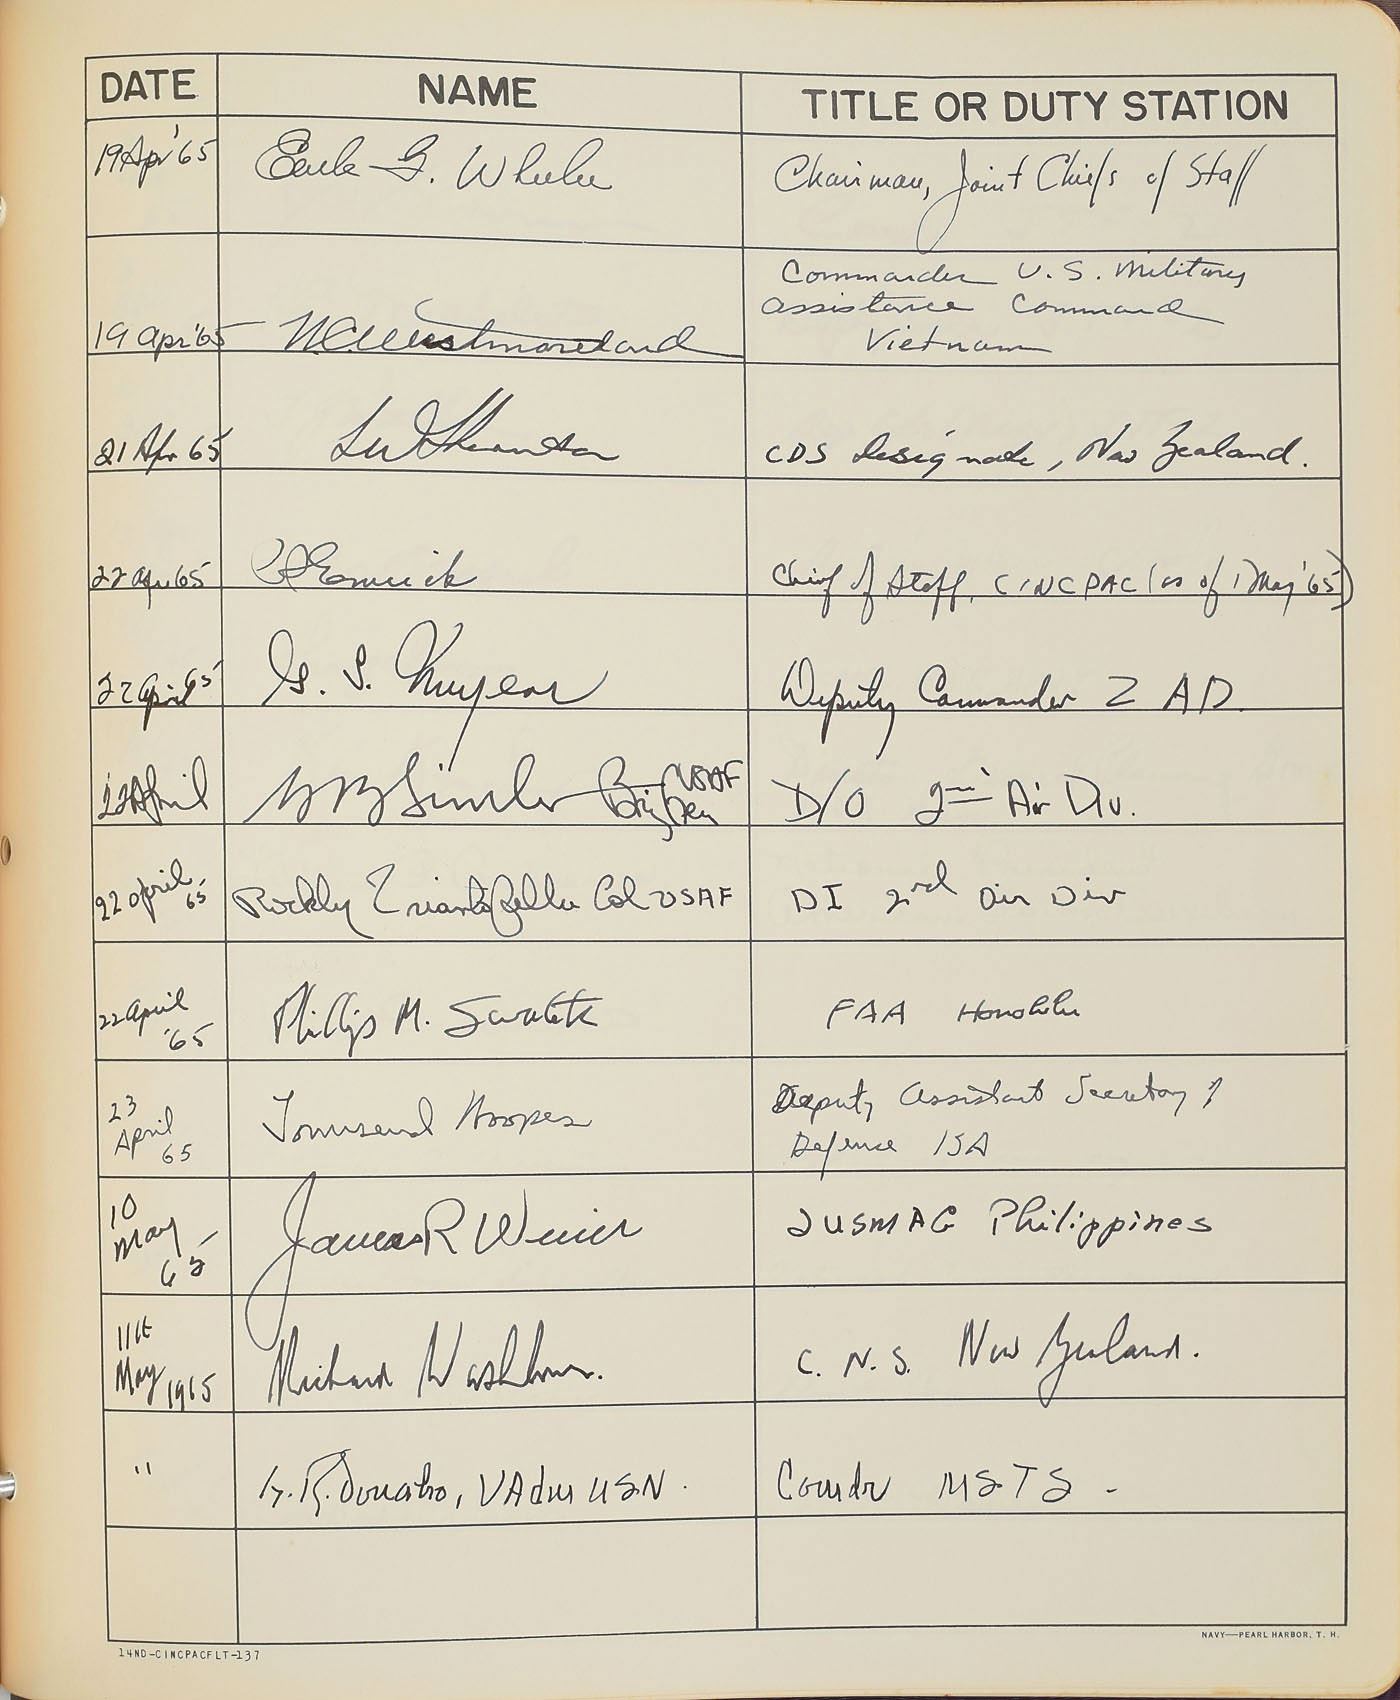 DATE NAME TITLE OR DUTY STATION
19 Apr '65 Earle G. Wheeler Chairman, Joint Chiefs of Staff
Commander U.S. Military
assistance Command
19 apr '65 W.C. Westmoreland Vietnam
21 Apr 65 CDS designate, New Zealand.
22 Apr 65 Chief of Staff, CINCPAC (as of 1 May '65)
22 April 65 G. S. Deputy Commander 2 AD
22 April Simler Brig Gen USAF D/O 2nd Air Div.
22 april 65 Rockly Triantafellu Col USAF DI 2nd Air Div
22 april '65 Phillip M. Swatek FAA Honolulu
23 April 65 Townsend Hoopes Deputy Assistant Secretary of
Defense ISA
10 May 65 James R Weier JUSMAG Philippines
11th May 1965 Richard Washbourn. C. N. S. New Zealand.
" G. R. Donaho, VAdm USN. Comdr MSTS -
14ND-CINCPACFLT-137
NAVY—PEARL HARBOR, T. H.